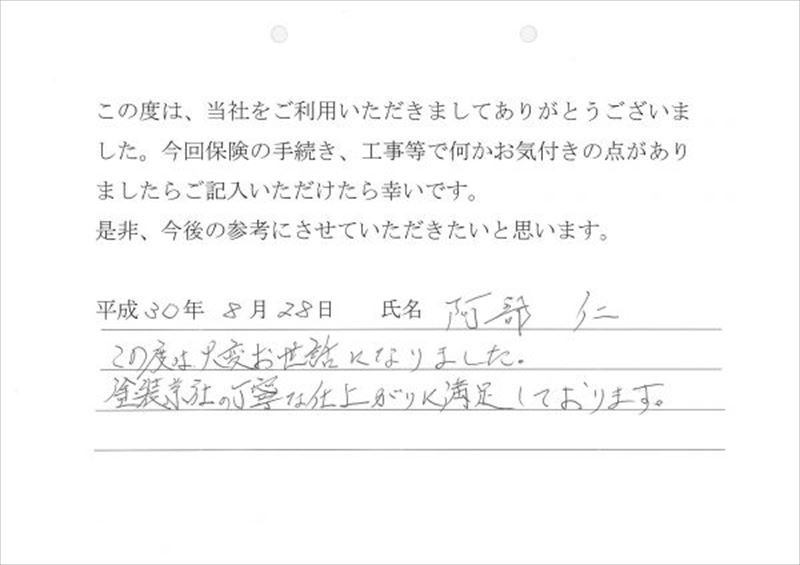 この度は、当社をご利用いただきましてありがとうございま
した。今回保険の手続き、工事等で何かお気付きの点があり
ましたらご記入いただけたら幸いです。
是非、今後の参考にさせていただきたいと思います。
平成30年 8月28日 氏名 阿部 仁
この度は大変お世話になりました。
塗装業社の丁寧な仕上がりに満足しております。